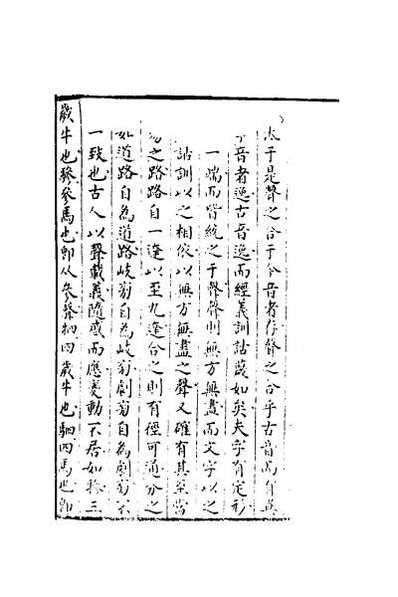 太于是聲之合于今音者存聲之合乎古音而有異
于音者逸古音逸而經義訓詁蔑如矣夫字有定形
一端而皆統之于聲聲則無方無盡而文字以之
詁訓以之相依以無方無盡之聲又確有其至當
易之路路自一達以至九達合之則有徑可通分之
如道路自為道路歧旁自為歧旁劇旁自為劇旁不
一致也古人以聲載義隨感而應變動不居如犙三
歲牛也驂參馬也即从參聲牭四歲牛也駟四馬也即